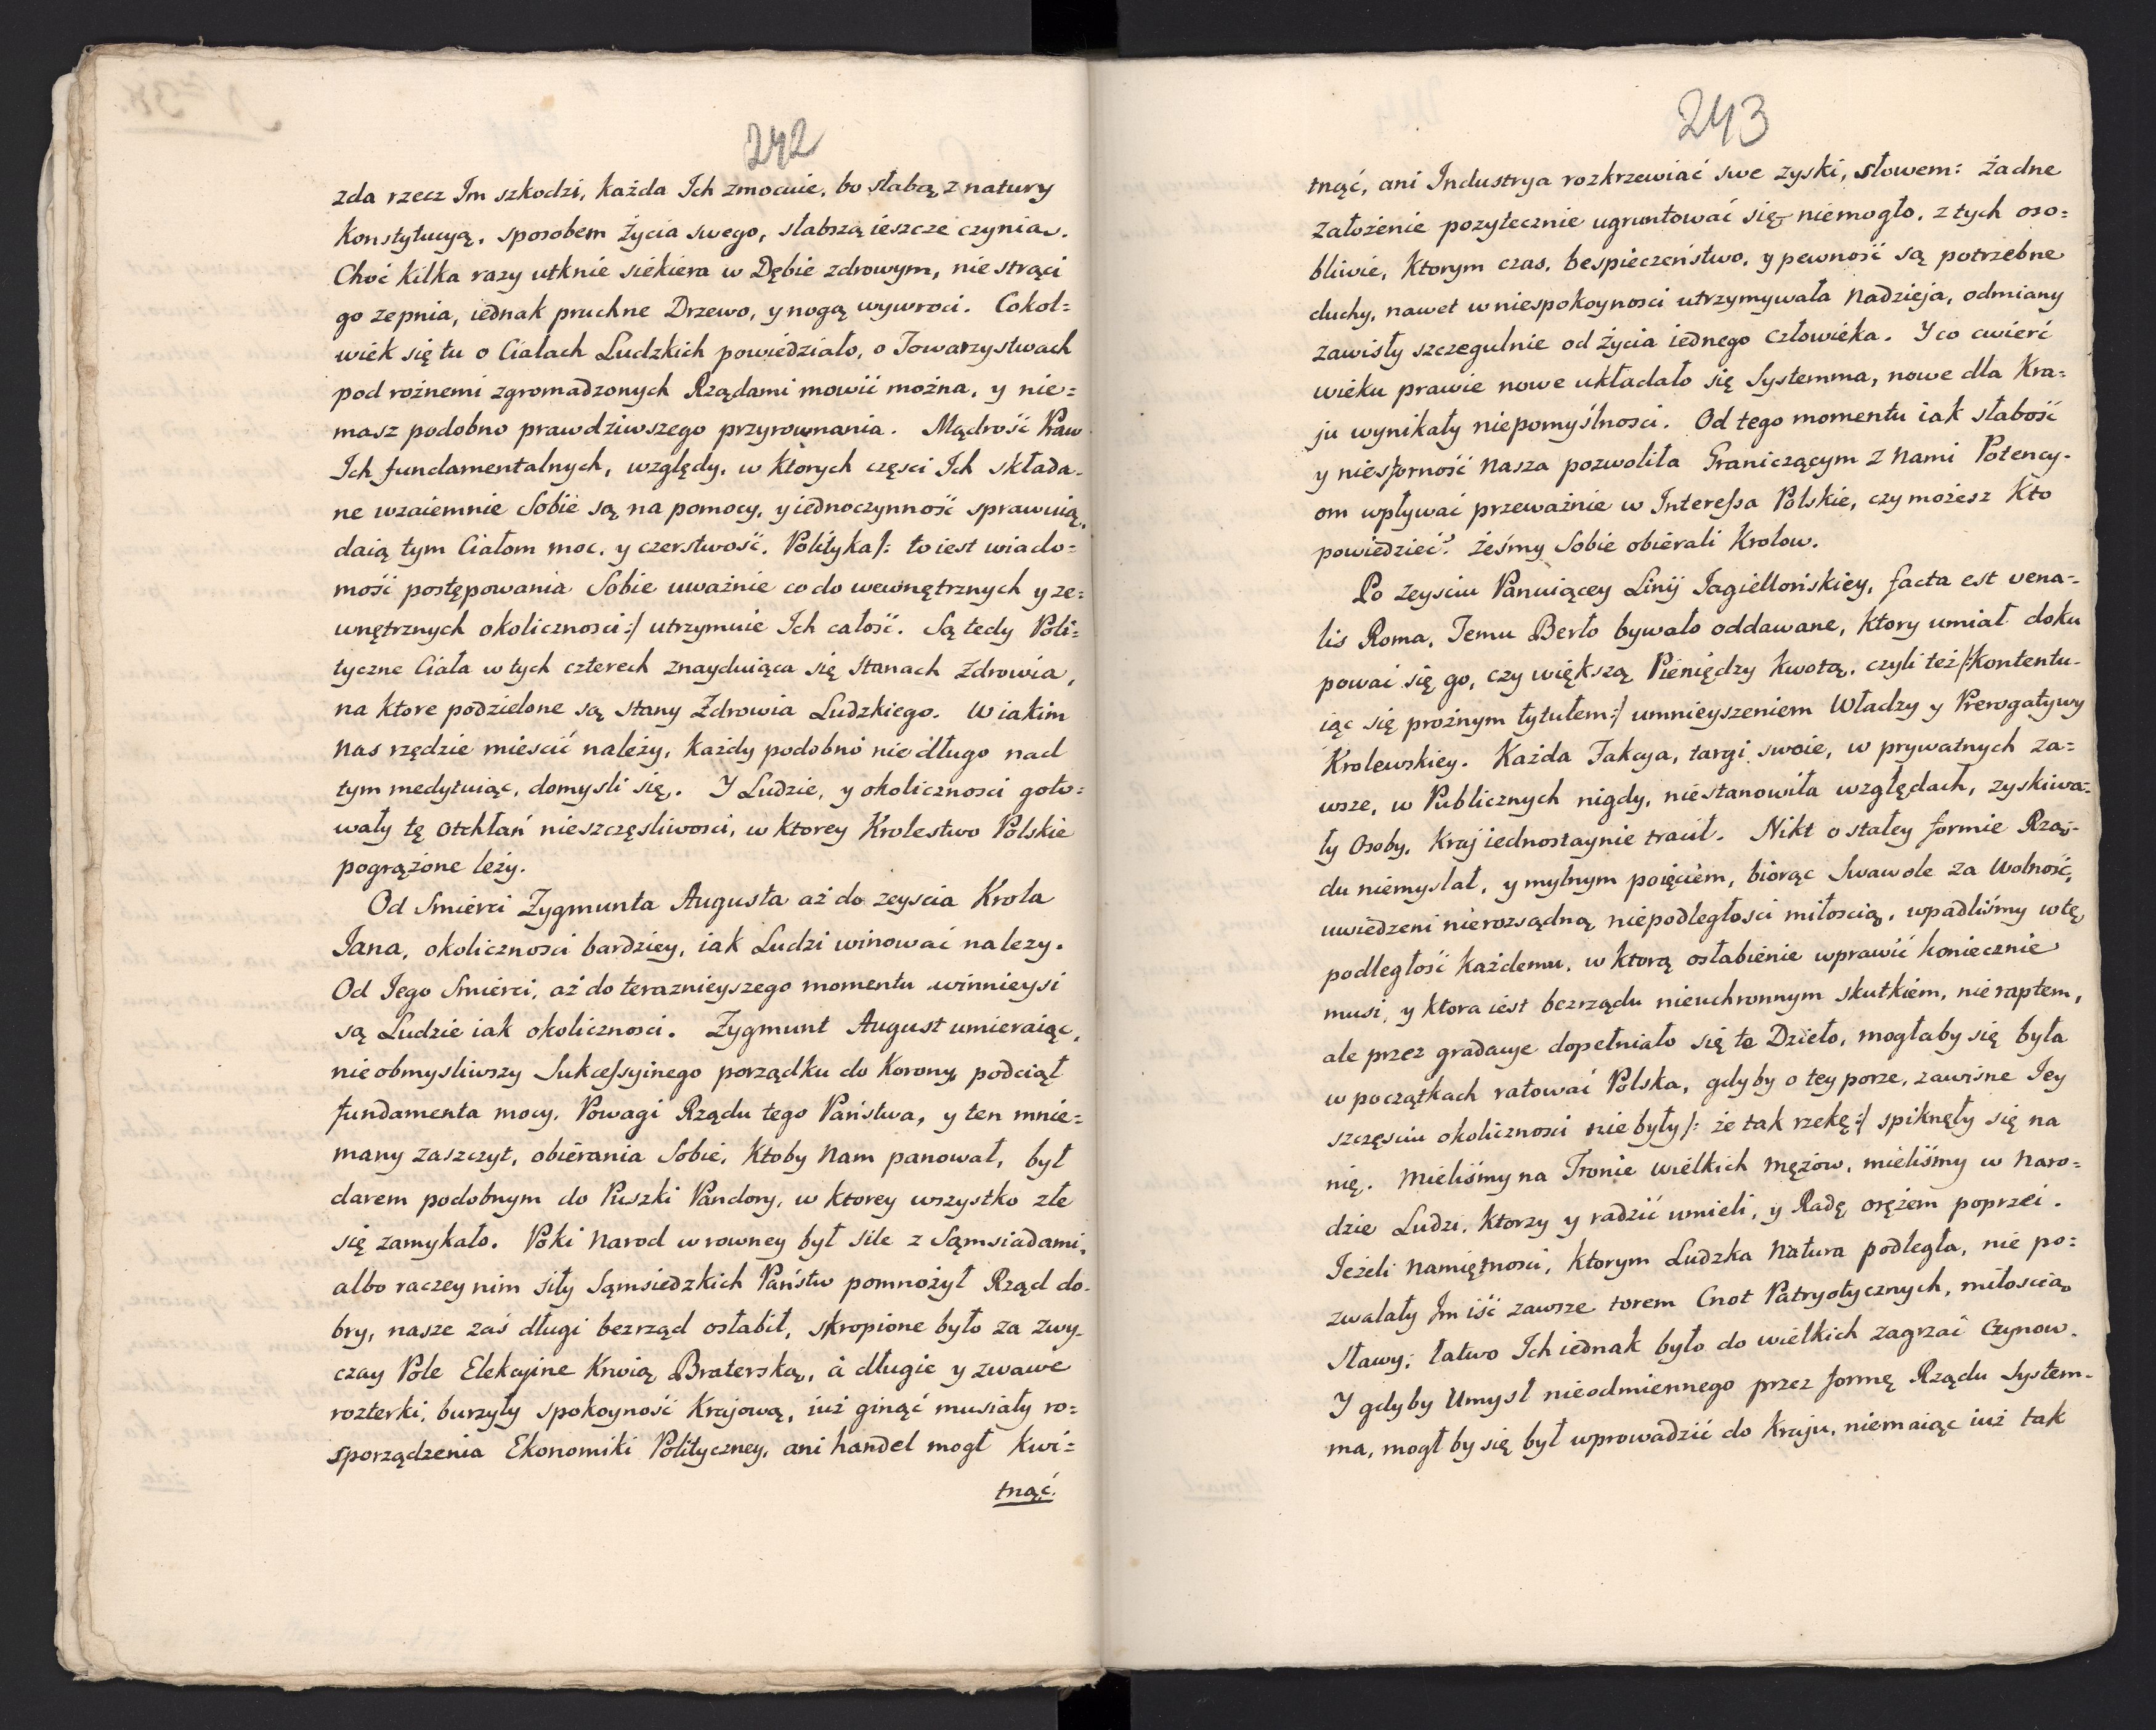 242
zda rzecz Im szkodzi, każda Ich zmocnie, bo słabą z natury
Konstytucyą, sposobem życia swego, słabszą ieszcze czynią.
Choć kilka razy utknie siekiera w Dębie zdrowym, nie strąci
go zepnia, iednak pruchne Drzewo, y nogą wywroci. Cokol=
wiek się tu o Ciałach Ludzkich powiedziało, o Towarzystwach
pod rożnemi zgromadzonych Rządami mowić można, y nie=
masz podobno prawdziwszego przyrownania. Mądrość Praw
Ich fundamentalnych, względy, w ktorych części Ich składa=
ne wzaiemnie Sobie są na pomocy, y iednoczynność sprawuią,
daią tym Ciałom moc, y czerstwość. Polityka /: to iest wiado=
mość postępowania Sobie uważnie co do wewnętrznych y ze=
wnętrznych okolicznosci :/ utrzymuie Ich całość. Są tedy Poli=
tyczne Ciała w tych czterech znayduiąca się stanach zdrowia,
na ktore podzielone są stany Zdrowia Ludzkiego. W iakim
nas rzędzie mieścić należy, każdy podobno nie długo nad
tym medytuiąc, domysli się. Y Ludzie, y okolicznosci goto=
wały tę otchłań nieszczęsliwosci, w ktorey Krolestwo Polskie
pogrążone leży.
Od Smierci Zygmunta Augusta aż do zeyscia Krola
Jana, okolicznosci bardziey, iak Ludzi winować nalezy.
Od Jego Smierci, aż do teraznieyszego momentu winnieysi
są Ludzie iak okolicznosci. Zygmunt August umieraiąc,
nie obmysliwszy Sukcessyinego porządku do Korony, podciął
fundamenta mocy, Powagi Rządu tego Państwa, y ten mnie=
many zaszczyt, obierania Sobie, Ktoby Nam panował, był
darem podobnym do Puszki Pandory, w ktorey wszystko złe
się zamykało. Poki Narod w rowney był sile z Sąmsiadami,
albo raczey nim siły Sąmsiedzkich Państw pomnożył Rząd do=
bry, nasze zaś długi bezrząd osłabił, skropione było za zwy=
czay Pole Elekcyine Krwią Braterską, a długie y zwawe
rozterki, burzyły spokoyność Krajową, iuż ginąć musiały ro=
sporządzenia Ekonomiki Polityczney, ani handel mogł Kwi=
tnąć.
243
tnąć, ani Industrya rozkrzewiać swe zyski, słowem: żadne
założenie pozytecznie ugruntować się niemogło, z tych oso=
bliwie, Ktorym czas, bespieczeństwo, y pewność są potrzebne
duchy, nawet w niespokoynosci utrzymywała Nadzieja, odmiany
zawisły szczegulnie od życia iednego Człowieka. Y co cwierć
wieku prawie nowe układało się Systemma, nowe dla Kra=
ju wynikały niepomyślnosci. Od tego momentu iak słabość
y niesforność Nasza pozwoliła Graniczącym z Nami Potency=
om wpływać przeważnie w Interessa Polskie, czy możesz Kto
powiedzieć? żeśmy Sobie obierali Krolow.
Po zeysciu Panuiącey Linij Jagiellońskiey, facta est vena=
lis Roma, Temu Berło bywało oddawane, Ktory umiał doku
pować się go, czy większą Pieniędzy kwotą, czyli też /: Kontentu=
iąc się prożnym tytułem :/ umnieyszeniem Władzy y Prerogatywy
Krolewskiey. Każda Fakcya, targi swoie, w prywatnych za=
wsze, w Publicznych nigdy, niestanowiła względach, zyskiwa=
ły Osoby, Kraj iednostaynie tracił. Nikt o stałey formie Rzą=
du niemyslał, y mylnym poięciem, biorąc Swawole za Wolność,
uwiedzeni nierozsądną niepodległosci miłoscią, wpadliśmy w tę
podległość każdemu, w ktorą osłabienie wprawić koniecznie
musi, y ktora iest bezrządu nieuchronnym skutkiem, nie raptem,
ale przez gradacye dopełniało się te Dzieło, mogłaby się była
w początkach ratować Polska, gdyby o tey porze, zawisne Jey
szczęsciu okolicznosci nie były /: że tak rzekę :/ spiknęły się na
nię. Mieliśmy na Tronie wielkich Mężow, mieliśmy w Naro=
dzie Ludzi, Ktorzy y radzić umieli, y Radę orężem poprzeć.
Jeżeli Namiętnosci, ktorym Ludzka Natura podległa, nie po=
zwalały Im iść zawsze torem Cnot Patryotycznych, miłoscią
Sławy, łatwo Ich iednak było do wielkich zagrzać Czynow.
Y gdyby Umysł nieodmiennego przez formę Rządu System=
ma, mogł by się był wprowadzić do Kraju, niemaiąc iuż tak